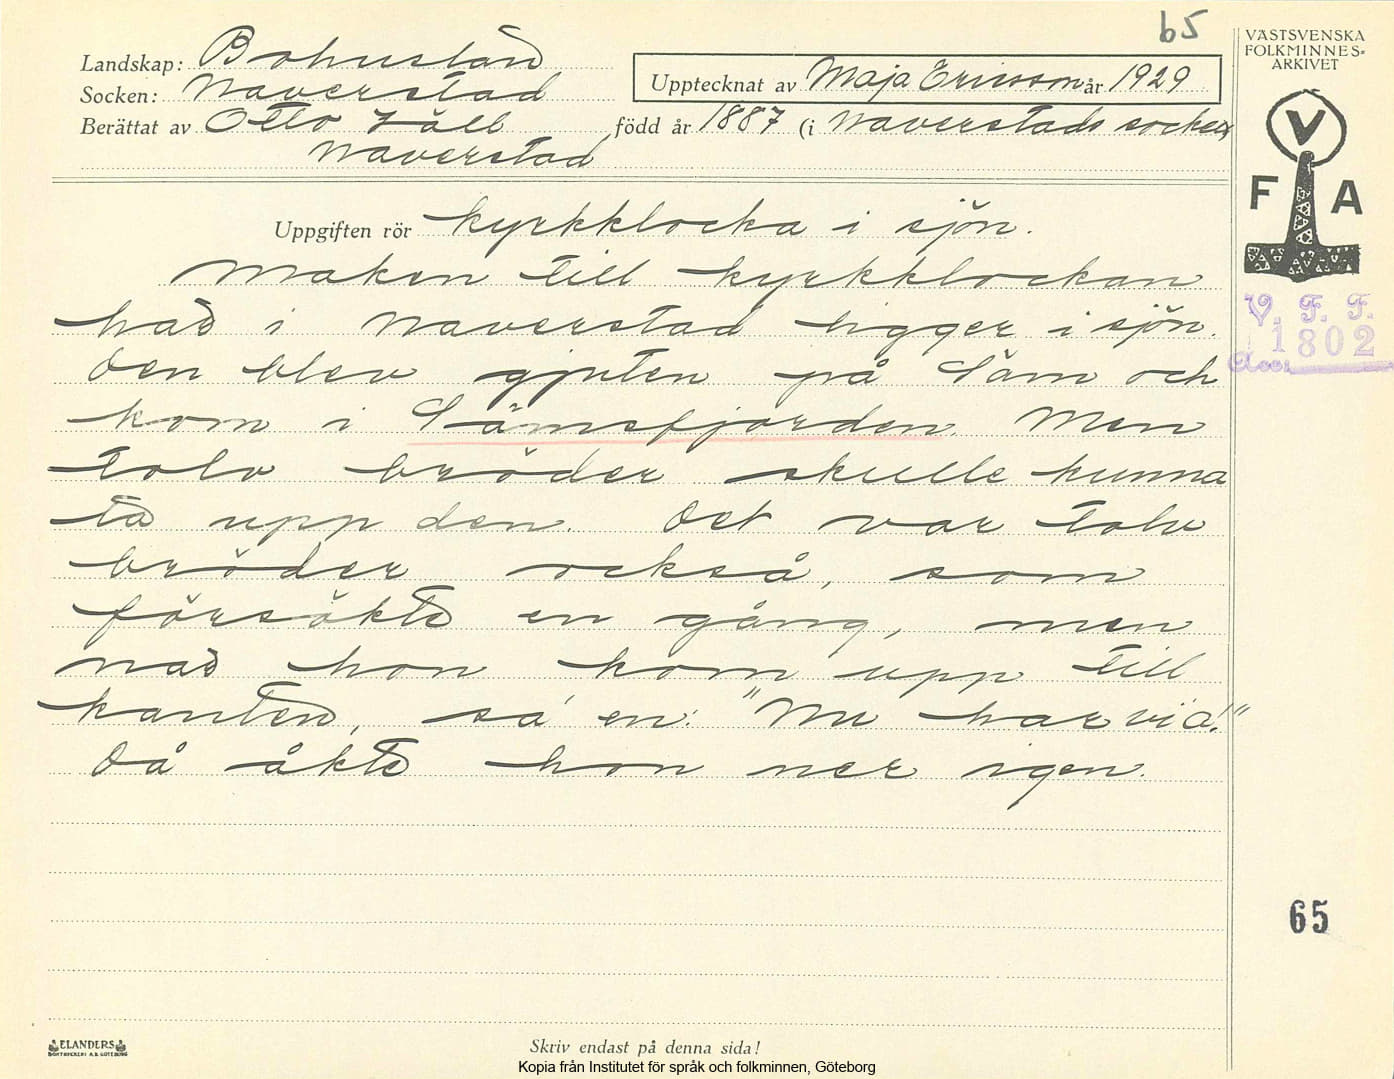 65
VÄSTSVENSKA
FOLKMINNES-
ARKIVET
Landskap: Bohuslän
Upptecknat av Maja Ericsson år 1929
Socken: Naverstad
Berättat av Otto Zäll, född år 1887 (i Naverstads socken)
Naverstad
V
F A
Uppgiften rör kyrkklocka i sjön.
Maken till kyrkklockan
häd i Naverstad ligger i sjön.
Den blev gjuten på Säm och
kom i Sämsfjorden. Men
tolv bröder skulle kunna
ta upp den. Det var tolv
bröder också, som
försökte en gång, men
näd hon kom upp till
kanten, sá en: "Nu har vi'a!"
Då åkte hon ner igen.
V. F. F.
1802
Acc.
65
ELANDERS
BOKTRYCKERI A.B. GÖTEBORG
Skriv endast på denna sida!
Kopia från Institutet för språk och folkminnen, Göteborg